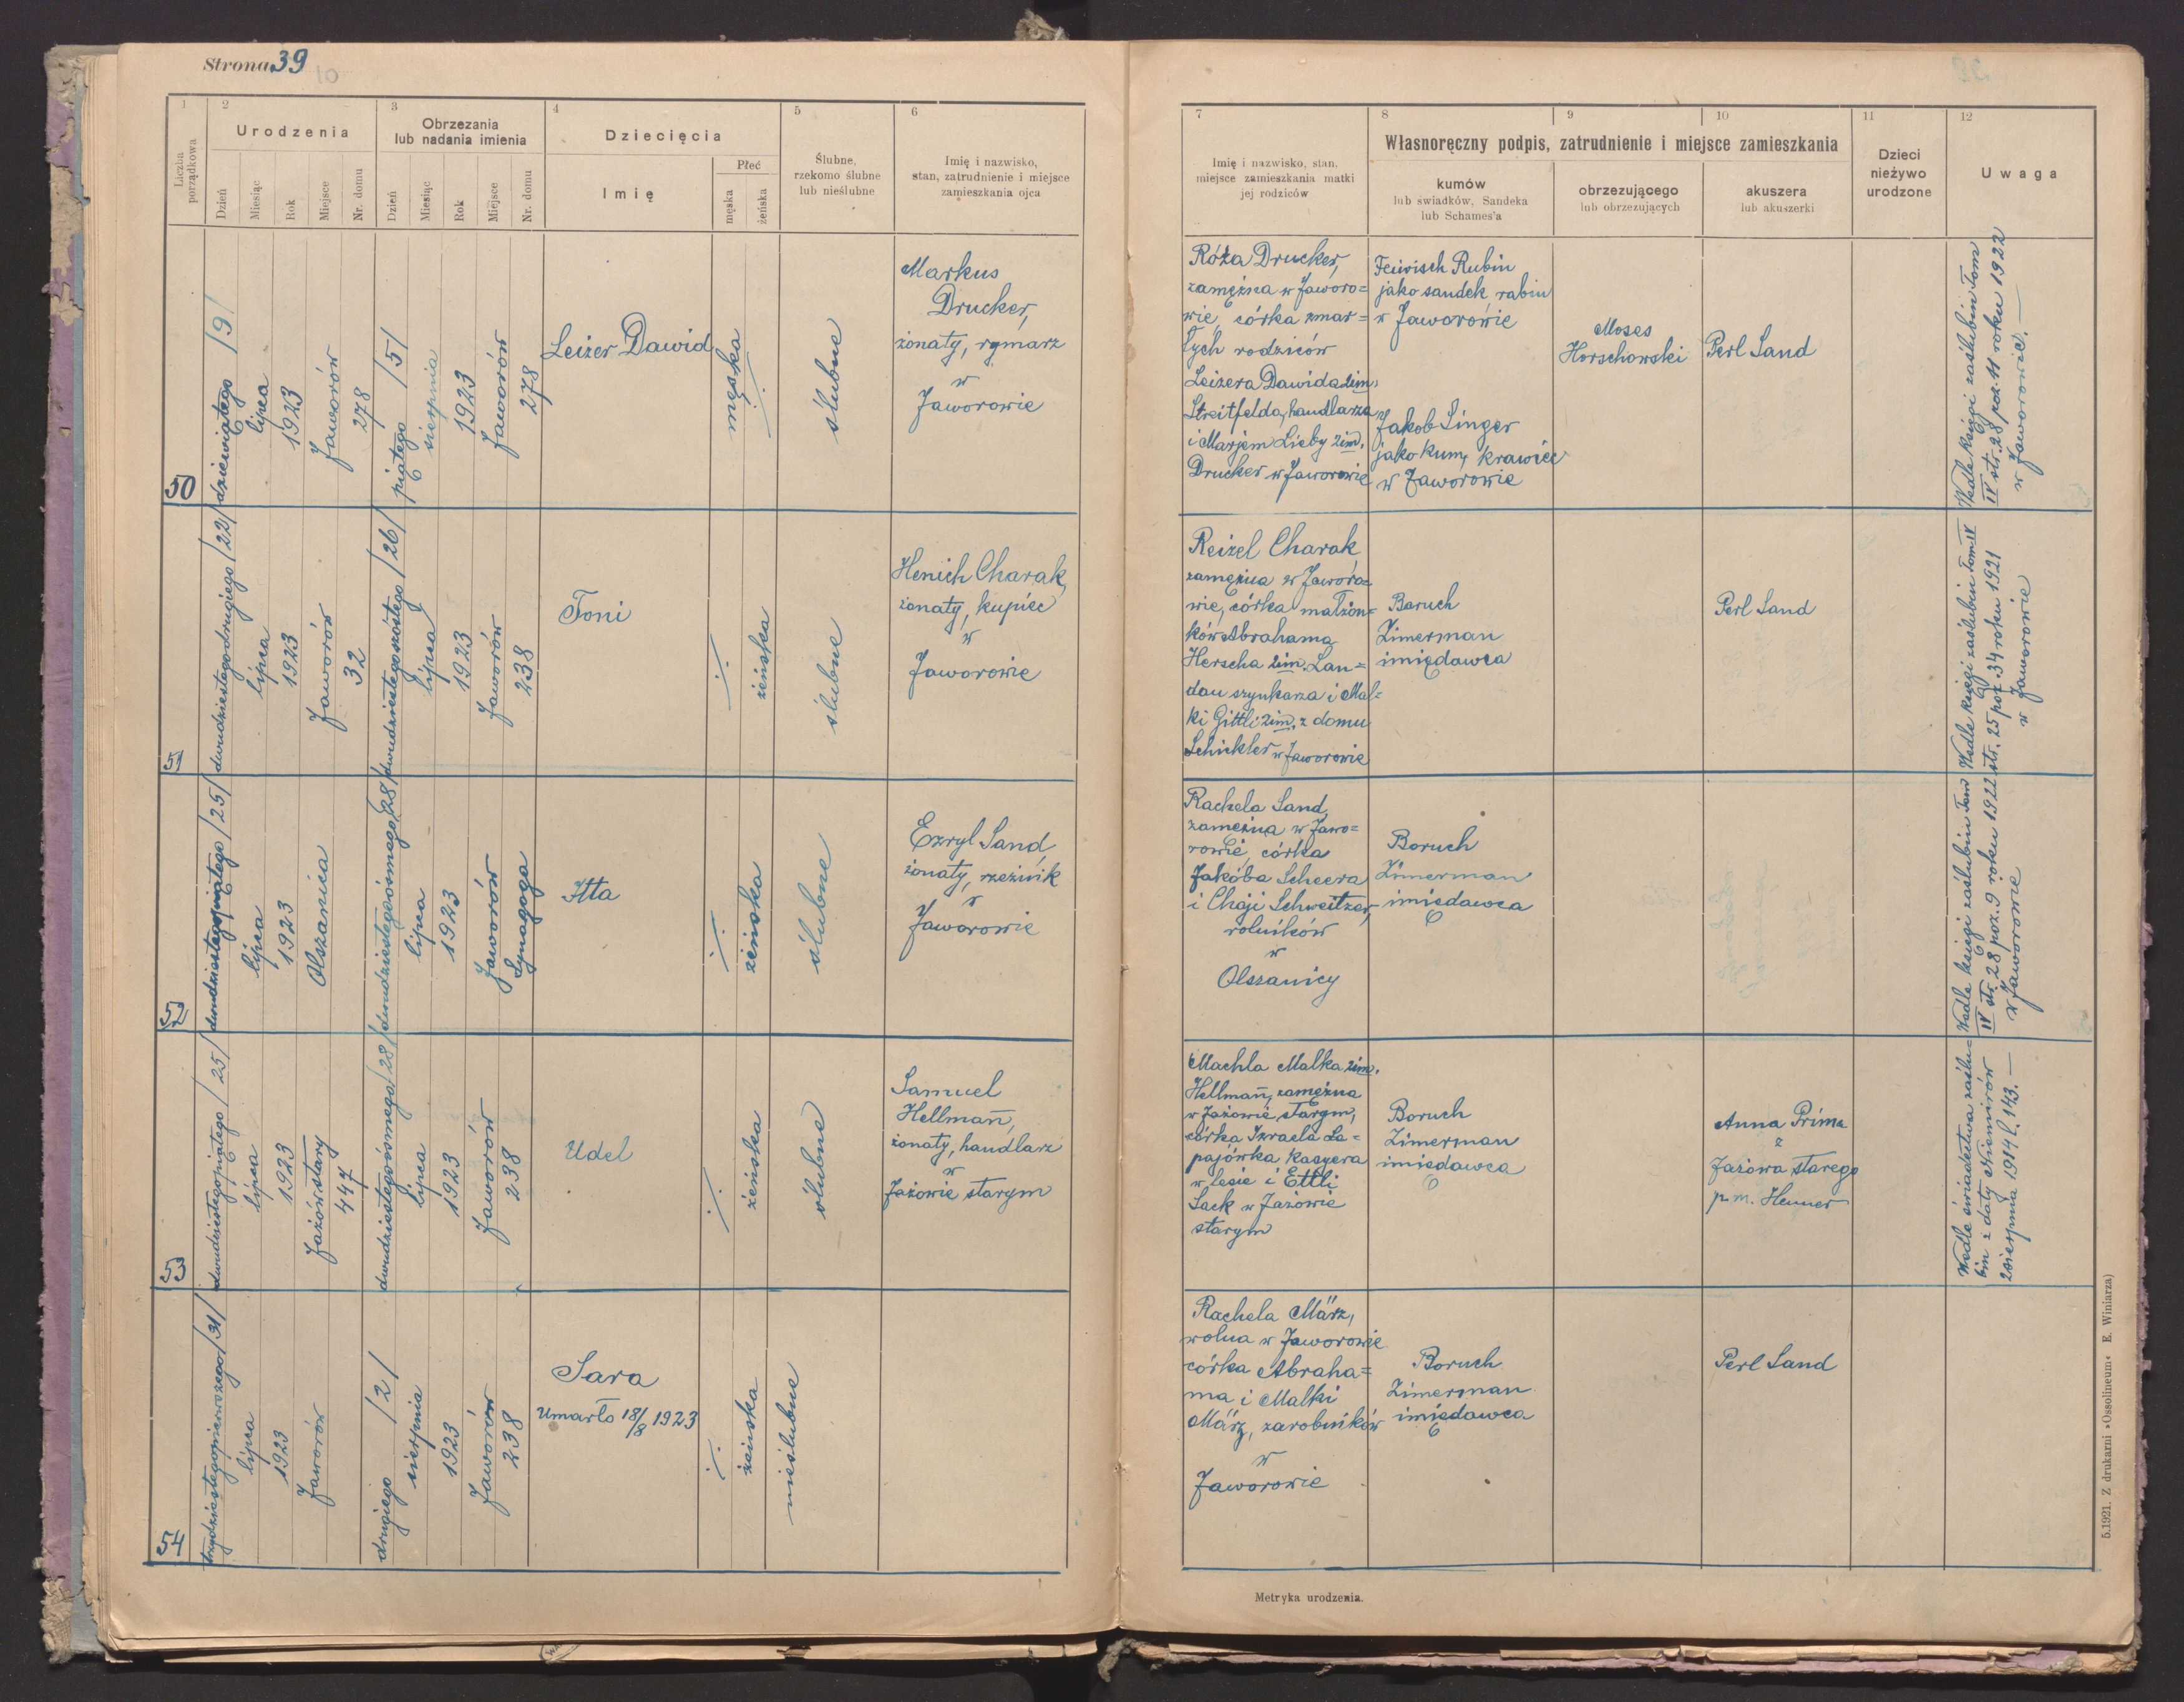 Strona 39
10
1
2
3
4
5
6
Liczba porządkowa
Urodzenia
Obrzezania
lub nadania imienia
Dziecięcia
Ślubne,
rzekomo ślubne
lub nieślubne
Imię i nazwisko,
stan, zatrudnienie i miejsce
zamieszkania ojca
Dzień
Miesiąc
Rok
Miejsce
Nr. domu
Dzień
Miesiąc
Rok
Miejsce
Nr. domu
Imię
Płeć
męska
żeńska
50
dziewiątego /9/
lipca
1923
Jaworów
278
piątego /5/
sierpnia
1923
Jaworów
278
Leizer Dawid
męska
ślubne
Markus
Drucker,
żonaty, rymarz
w
Jaworowie
51
dwudziestego drugiego /22/
lipca
1923
Jaworów
32
dwudziestego szóstego /26/
lipca
1923
Jaworów
238
Toni
żeńska
ślubne
Henich Charak,
żonaty, kupiec
w
Jaworowie
52
dwudziestego piątego /25/
lipca
1923
Olszanica
dwudziestego ósmego /28/
lipca
1923
Jaworów
Synagoga
Itta
żeńska
ślubne
Ezryl Sand,
żonaty, rzeźnik
w
Jaworowie
53
dwudziestego piątego /25/
lipca
1923
Jażów stary
447
dwudziestego ósmego /28/
lipca
1923
Jaworów
238
Udel
żeńska
ślubne
Samuel
Hellmañ,
żonaty, handlarz
w
Jażowie starym
54
trzydziestego pierwszego /31/
lipca
1923
Jaworów
drugiego /2/
sierpnia
1923
Jaworów
238
Sara
Umarło 18/8 1923
żeńska
nieślubne
7
8
9
10
11
12
Imię i nazwisko, stan,
miejsce zamieszkania matki
jej rodziców
Własnoręczny podpis, zatrudnienie i miejsce zamieszkania
kumów
lub świadków, Sandeka
lub Schames'a
obrzezującego
lub obrzezujących
akuszera
lub akuszerki
Dzieci
nieżywo
urodzone
Uwaga
Róża Drucker,
zamężna w Jaworo=
wie, córka zmar=
łych rodziców
Leizera Dawida 2im.
Streitfelda, handlarza
i Marjem Lieby 2im.
Drucker w Jaworowie
Feiwisch Rubin
jako sandek, rabin
w Jaworowie
Jakob Singer
jako kum, krawiec
w Jaworowie
Moses
Horschowski
Perl Sand
Wedle księgi zaślubin Tom
IV str. 28 poz. 11 roku 1922
w Jaworowie. —
Reizel Charak
zamężna w Jaworo=
wie, córka małżon=
ków Abrahama
Herscha 2im. Lan=
dau szynkarza i Mal=
ki Gittli 2im. z domu
Schickler w Jaworowie
Baruch
Zimerman
imiędawca
Perl Sand
Wedle księgi zaślubin Tom IV
str. 25 poz. 34 roku 1921
w Jaworowie
Rachela Sand,
zamężna w Jawo=
rowie, córka
Jakóba Scheera
i Chaji Schweitzer,
rolników
w
Olszanicy
Boruch
Zimerman
imiędawca
Wedle księgi zaślubin Tom
IV str. 28 poz. 9 roku 1922
w Jaworowie
Machla Malka 2im.
Hellmañ, zamężna
w Jażowie starym,
córka Izraela La=
pajówka kasyera
w lesie i Ettli
Sack w Jażowie
starym
Boruch
Zimerman
imiędawca
Anna Prima
z
Jażowa starego
p. m. Hemer
Wedle świadectwa zaślu=
bin z daty Niemirów
2 sierpnia 1914 l. 143. —
Rachela März,
wolna w Jaworowie
córka Abraha=
ma i Malki
März, zarobników
w
Jaworowie
Boruch
Zimerman
imiędawca
Perl Sand
Metryka urodzenia.
5.1921. Z drukarni »Ossolineum« E. Winiarza)